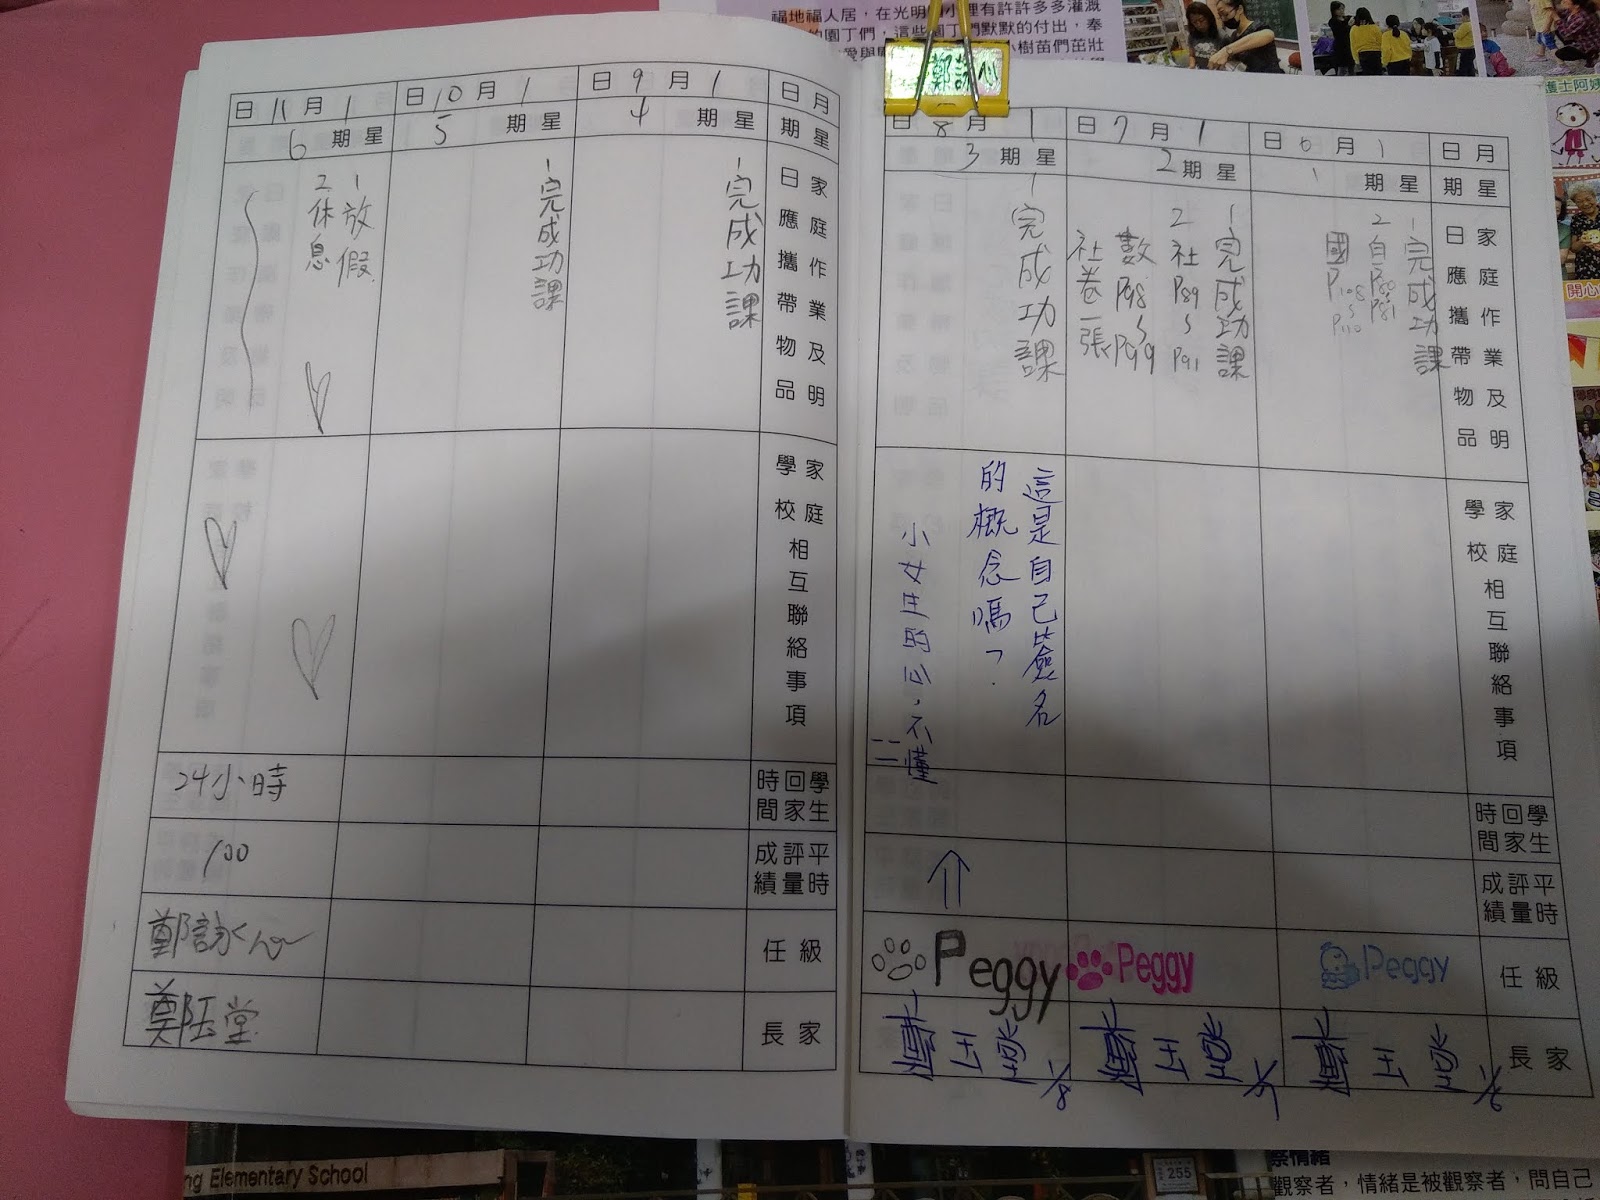 福地福人居，在光明國小裡有許許多多灌溉
的園丁們，這些園丁們默默的付出，奉
小樹苗們茁壯
護士阿姨
開心
月 日
星期
家庭作業及明
日應攜帶物品
家庭
學校
相互聯絡事項
學生回家
時間
平時評量
成績
級任
家長
1月6日
星期一
1完成功課
2自P80~P81
國P108~P110
Peggy
1/6
1月7日
星期2
1完成功課
2社P89~P91
數P98~P99
社卷一張
Peggy
1/7
1月8日
星期3
1完成功課
這是自己簽名
的概念嗎？
小女生的心，不懂
Peggy
1/8
月 日
星期
家庭作業及明
日應攜帶物品
家庭
學校
相互聯絡事項
學生回家
時間
平時評量
成績
級任
家長
1月9日
星期4
1完成功課
1月10日
星期5
1完成功課
1月11日
星期6
1放假
2休息
24小時
100
鄭詠心
鄭玉堂
ng Elementary School
255
察情緒
觀察者，情緒是被觀察者，問自己